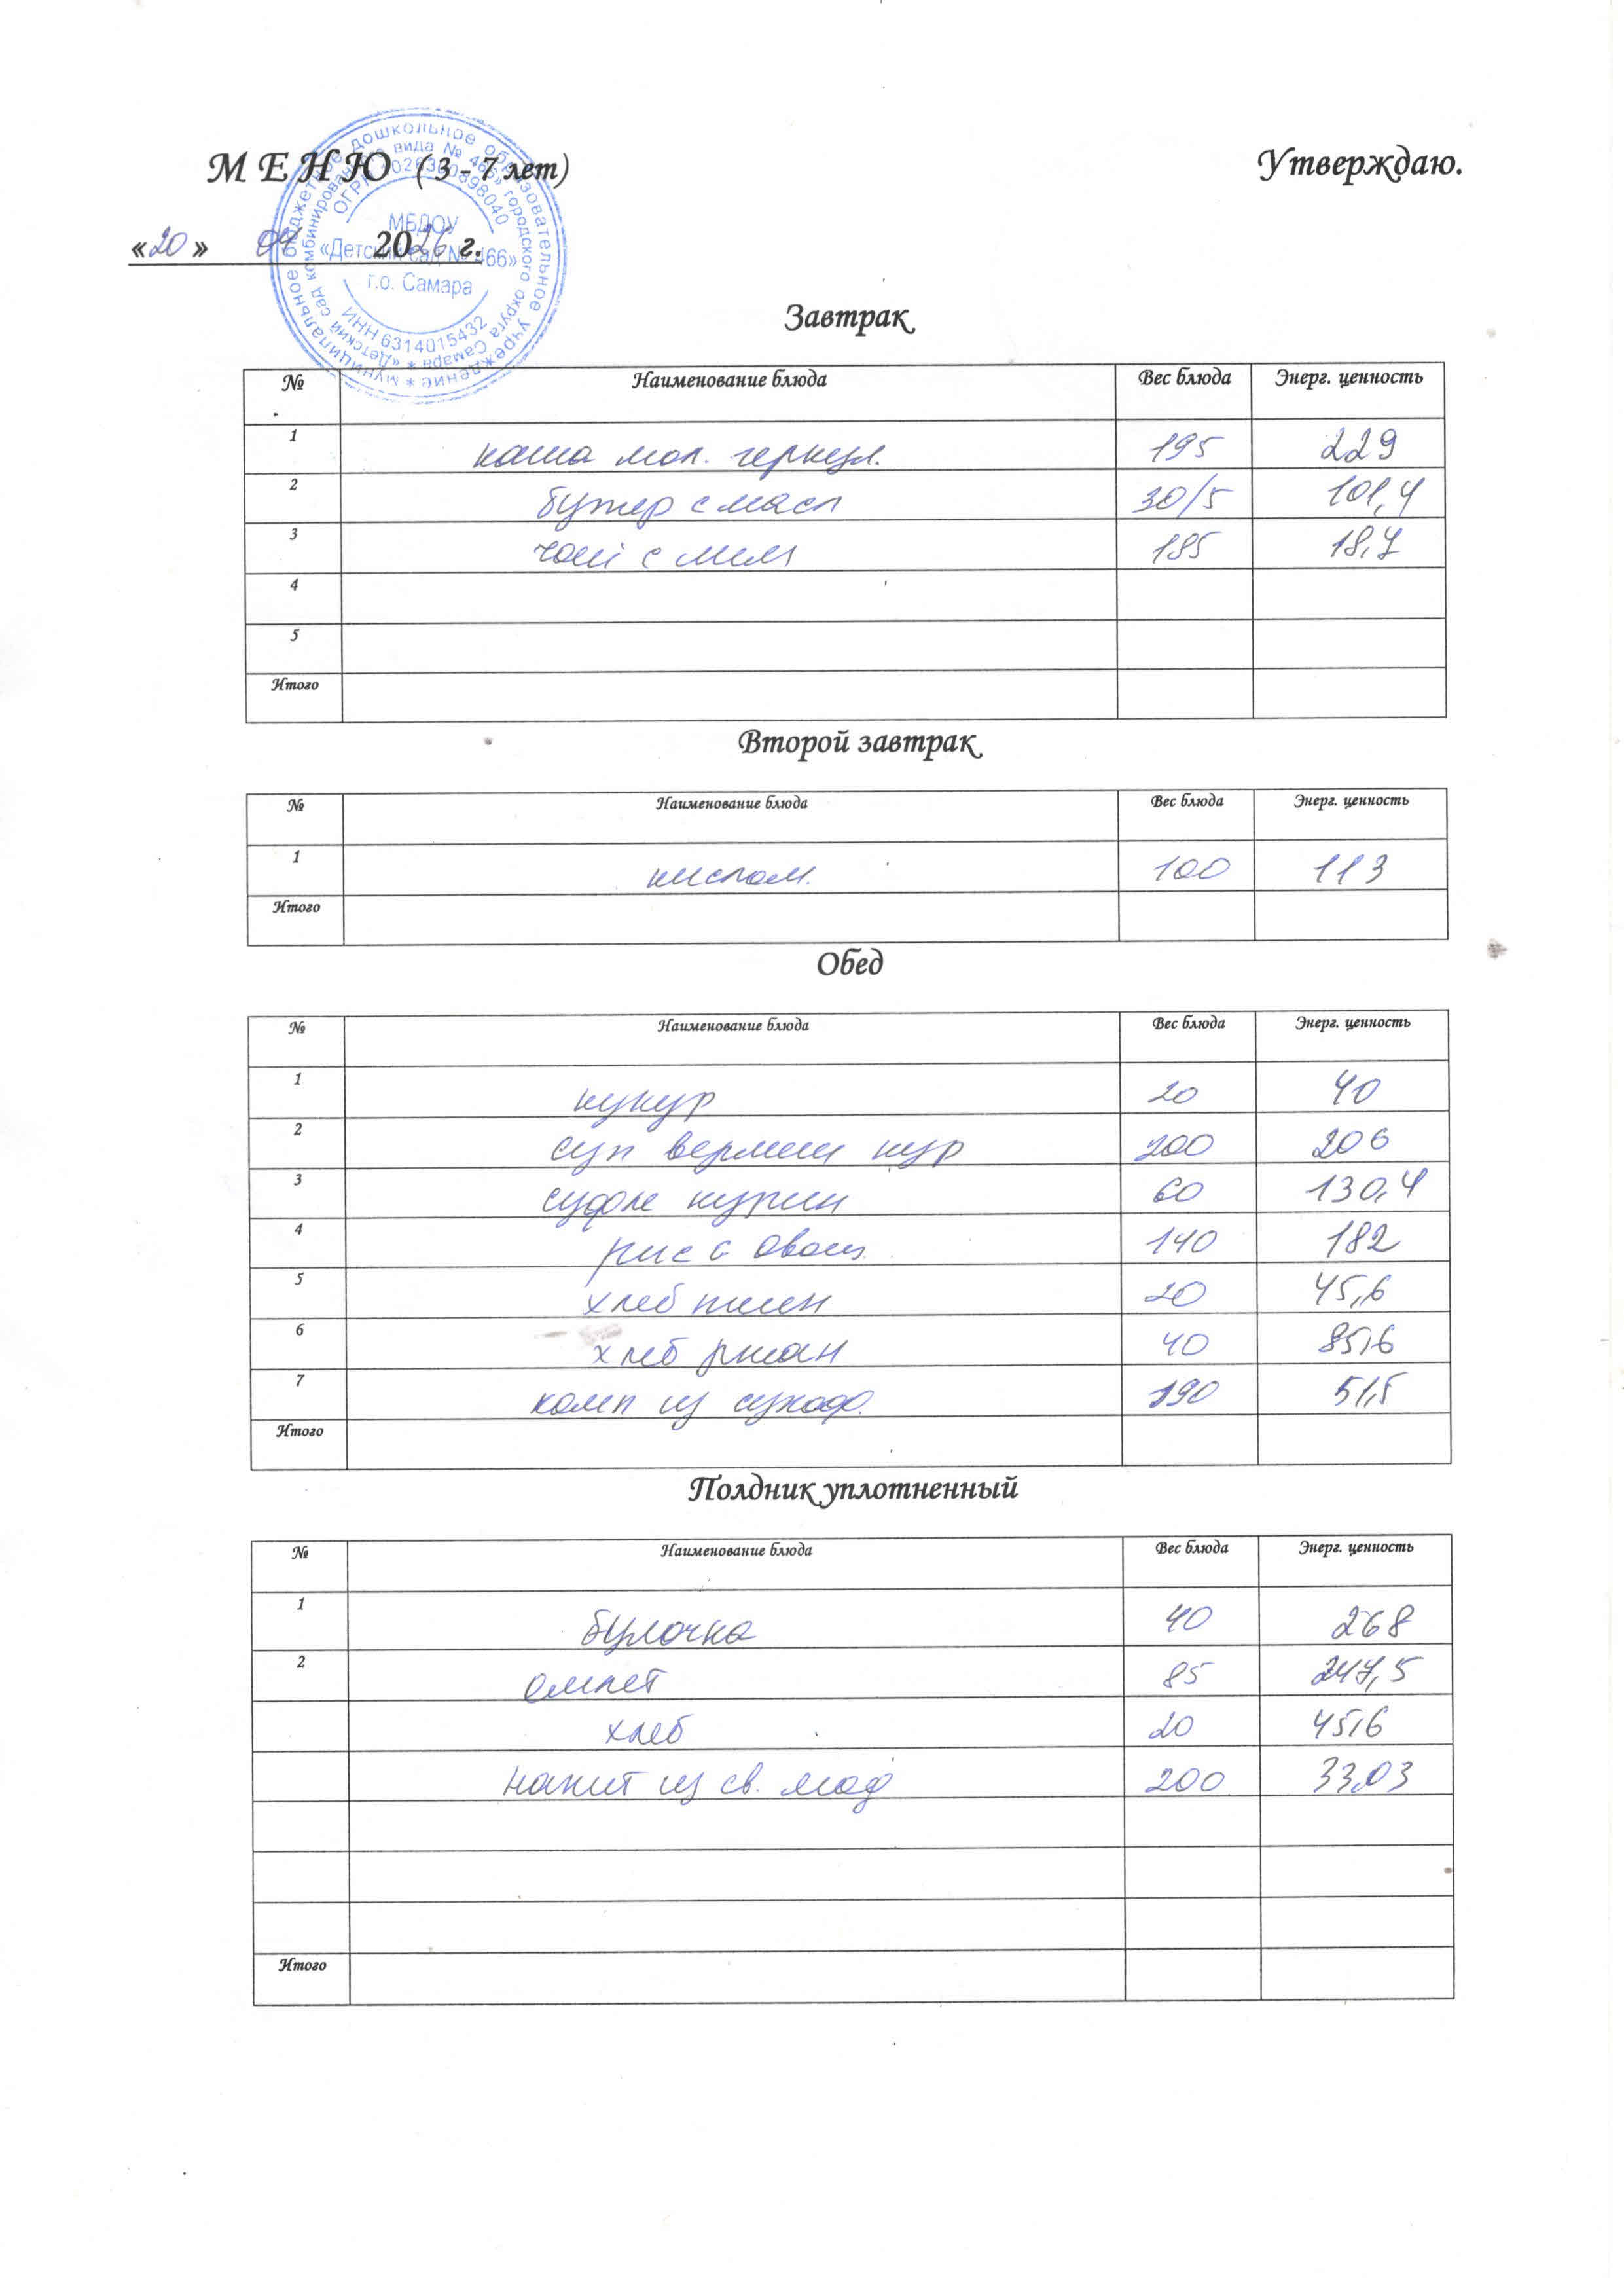 М Е Н Ю ( 3 - 7 лет) Утверждаю.
«20» 04 2026 г.
муниципальное бюджетное дошкольное образовательное учреждение *
«Детский сад комбинированного вида № 466» городского округа Самара *
ОГРН
МБДОУ
«Детский сад № 466»
г.о. Самара
ИНН 6314015432
Завтрак
№ Наименование блюда Вес блюда Энерг. ценность
1 каша мол. геркул. 195 229
2 бутер с масл 30/5 101,4
3 чай с лим 185 18,7
4
5
Итого
Второй завтрак
№ Наименование блюда Вес блюда Энерг. ценность
1 кислом. 100 113
Итого
Обед
№ Наименование блюда Вес блюда Энерг. ценность
1 кукур 20 40
2 суп вермиш кур 200 206
3 суфле курин 60 130,4
4 рис с овощ. 140 182
5 хлеб пшен 20 45,6
6 хлеб ржан 40 85,6
7 комп из сухоф. 190 51,5
Итого
Полдник уплотненный
№ Наименование блюда Вес блюда Энерг. ценность
1 булочка 40 268
2 омлет 85 247,5
хлеб 20 45,6
напит из св. ягод 200 33,03
Итого